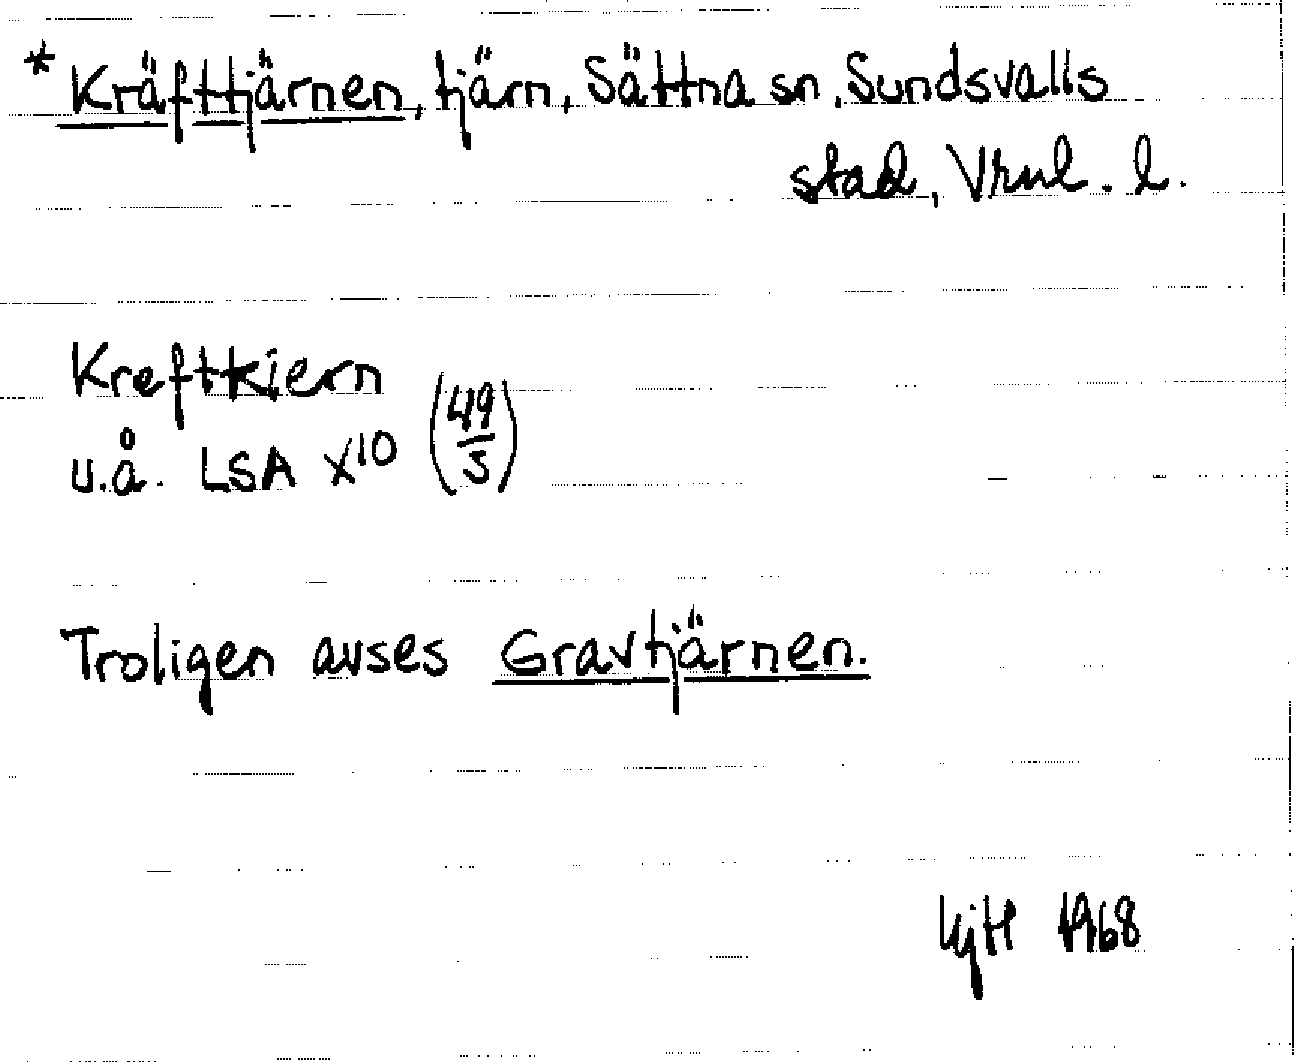 * Kräfttjärnen, tjärn, Sättna sn, Sundsvalls
stad, Vrnl. l.
Kreftkiern
u.å. LSA X10 (49/5)
Troligen avses Gravtjärnen.
1968